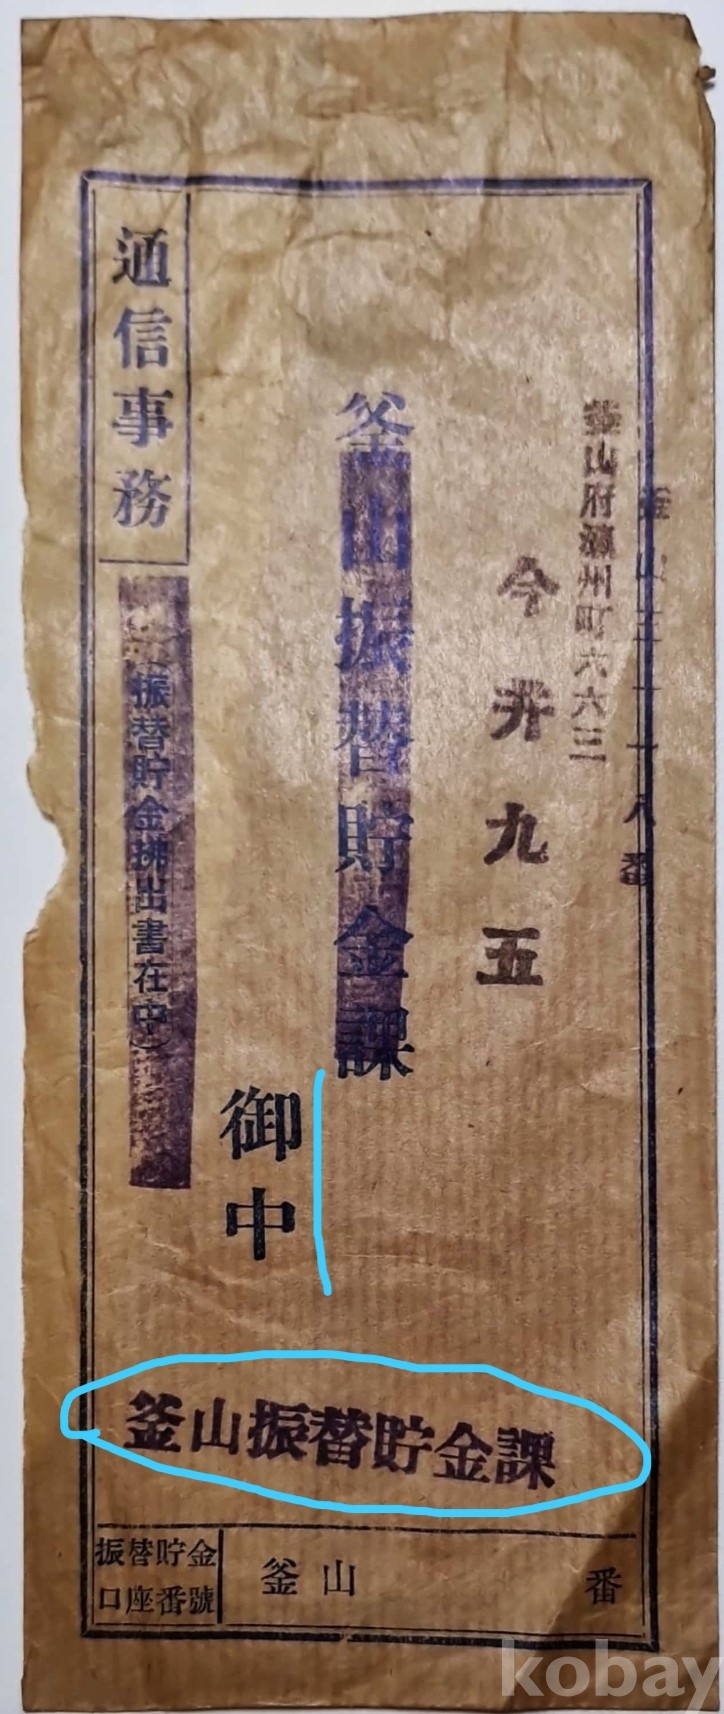 釜山三一一八番
釜山府瀛州町六六三
今井九五
釜山振替貯金課
御中
通信事務
(振替貯金拂出書在中)
釜山振替貯金課
振替貯金
口座番號
釜山 番
kobay